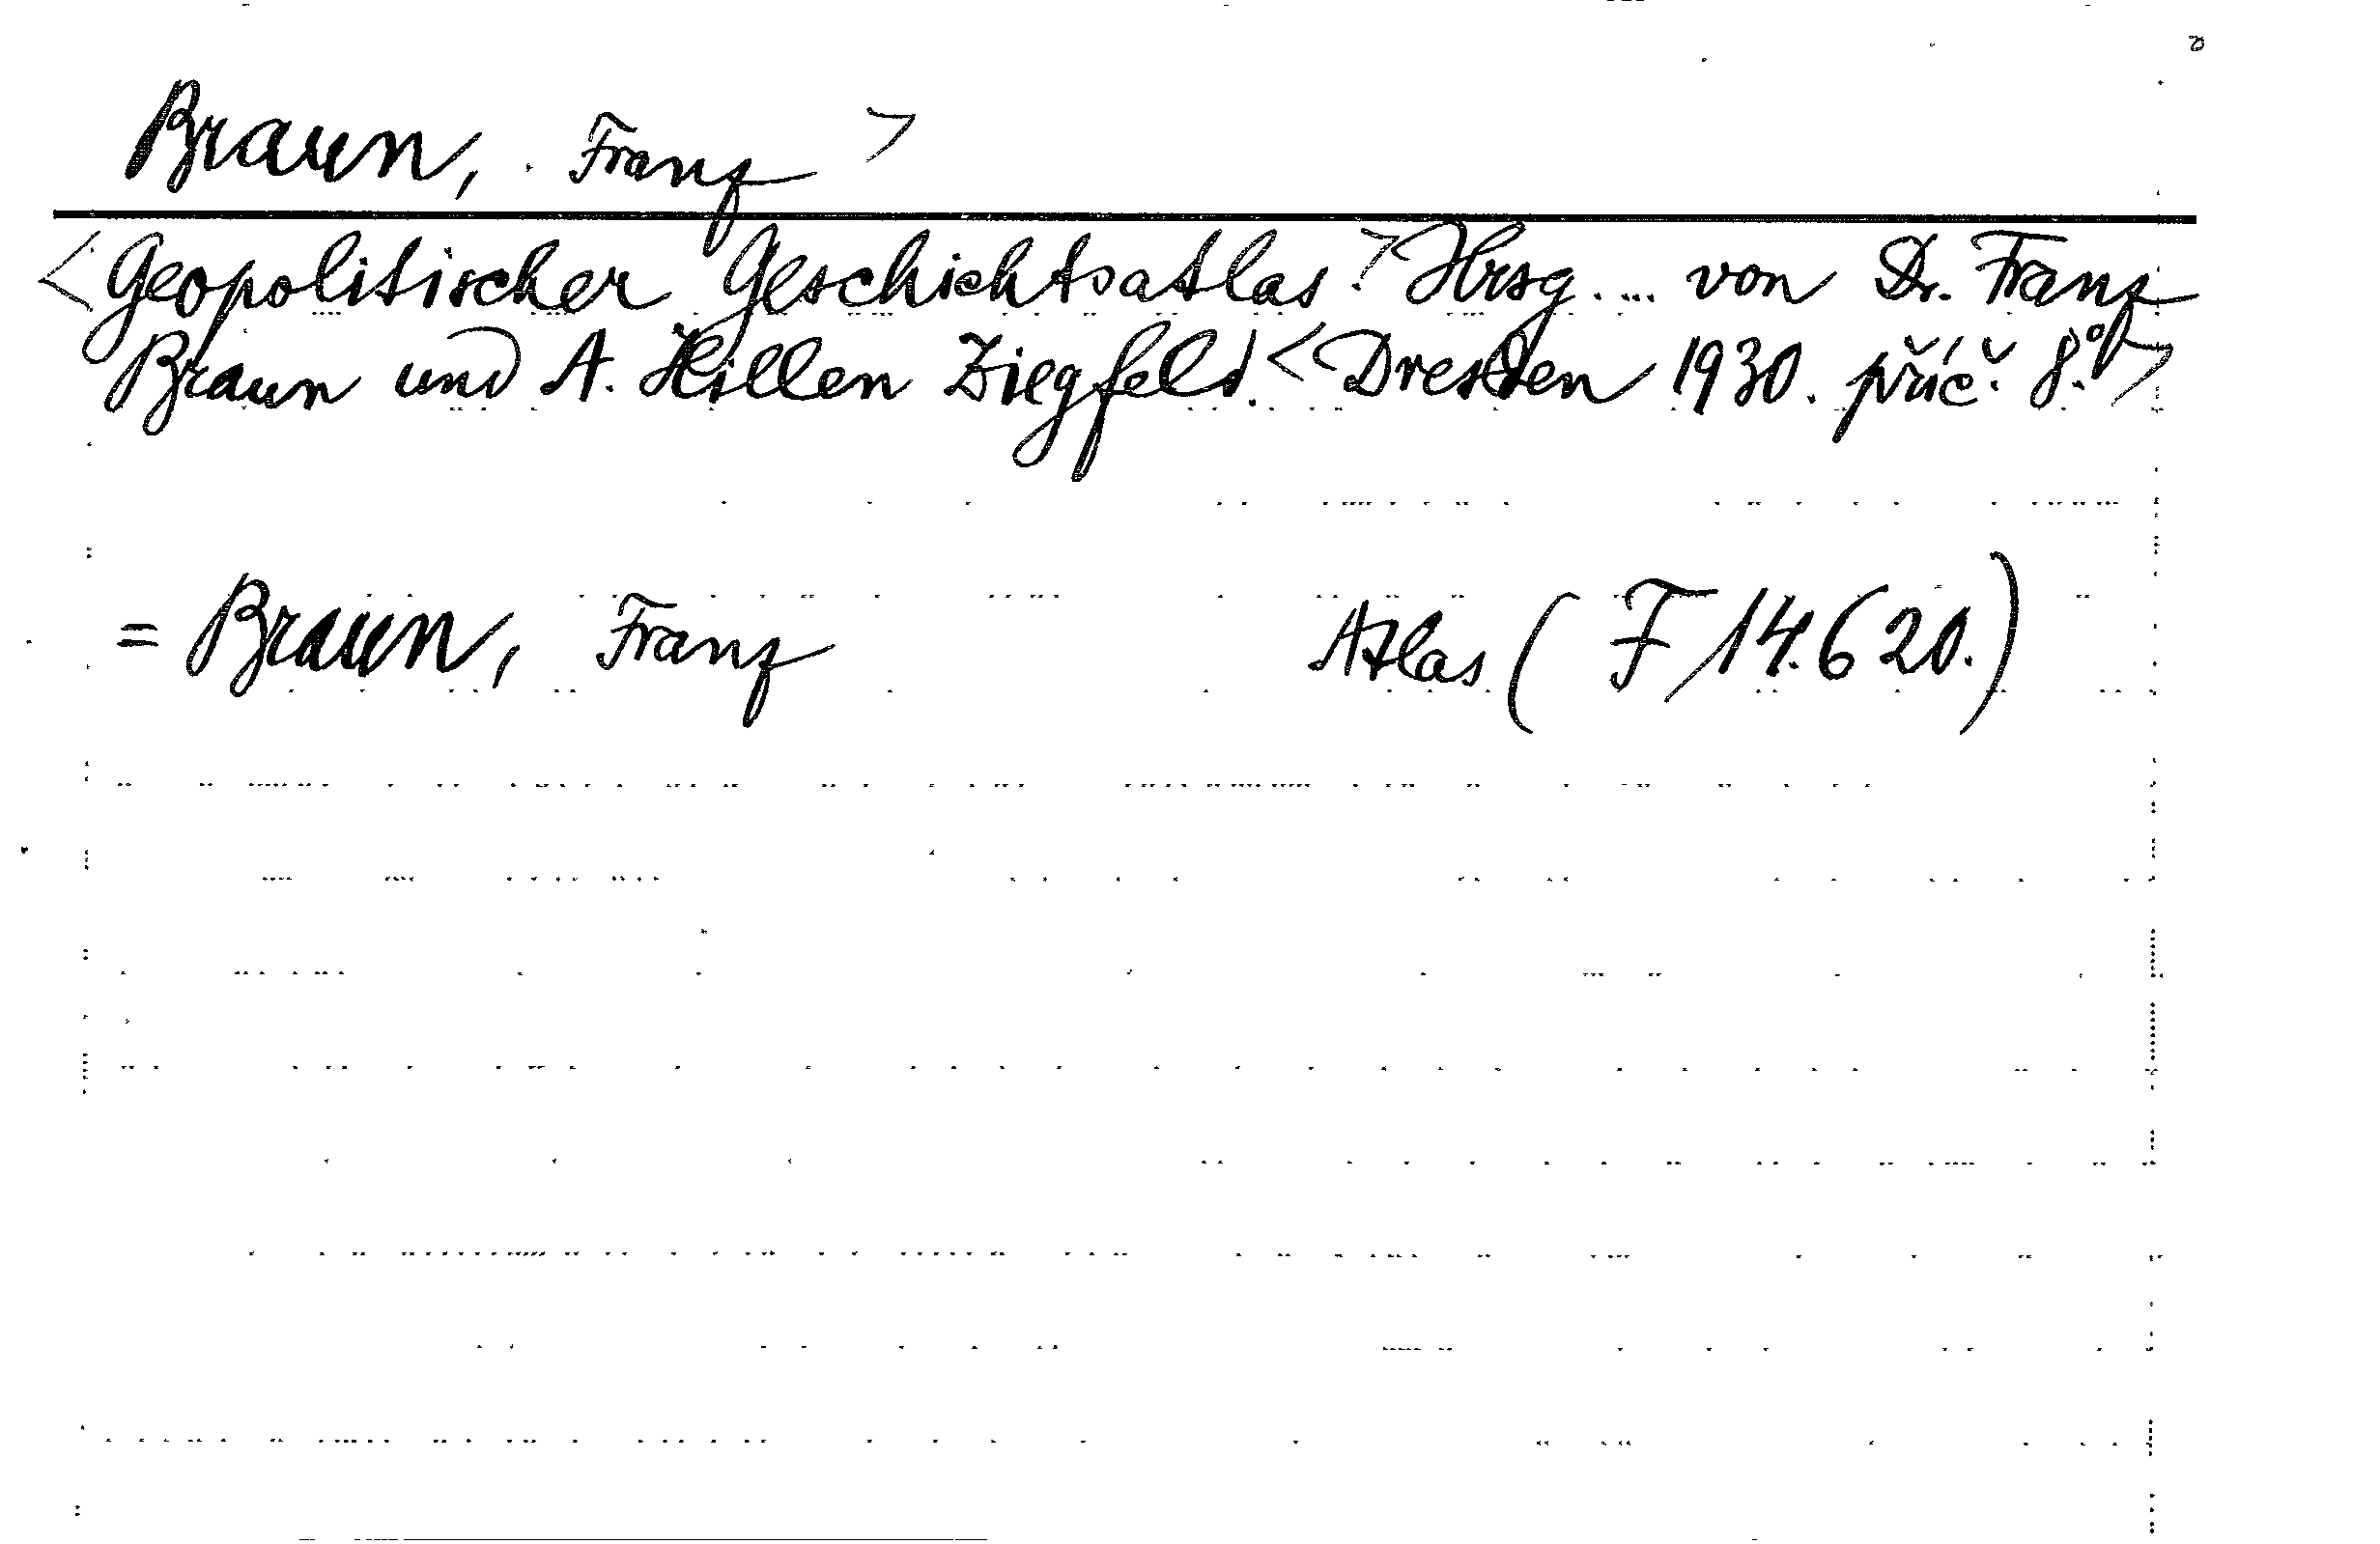 Braun, Franz >
<Geopolitischer Geschichtsatlas.> Hrsg. ... von Dr. Franz
Braun und A. Hillen Ziegfeld. <Dresden 1930. příč. 8.°>
= Braun, Franz Atlas (F 14.620.)